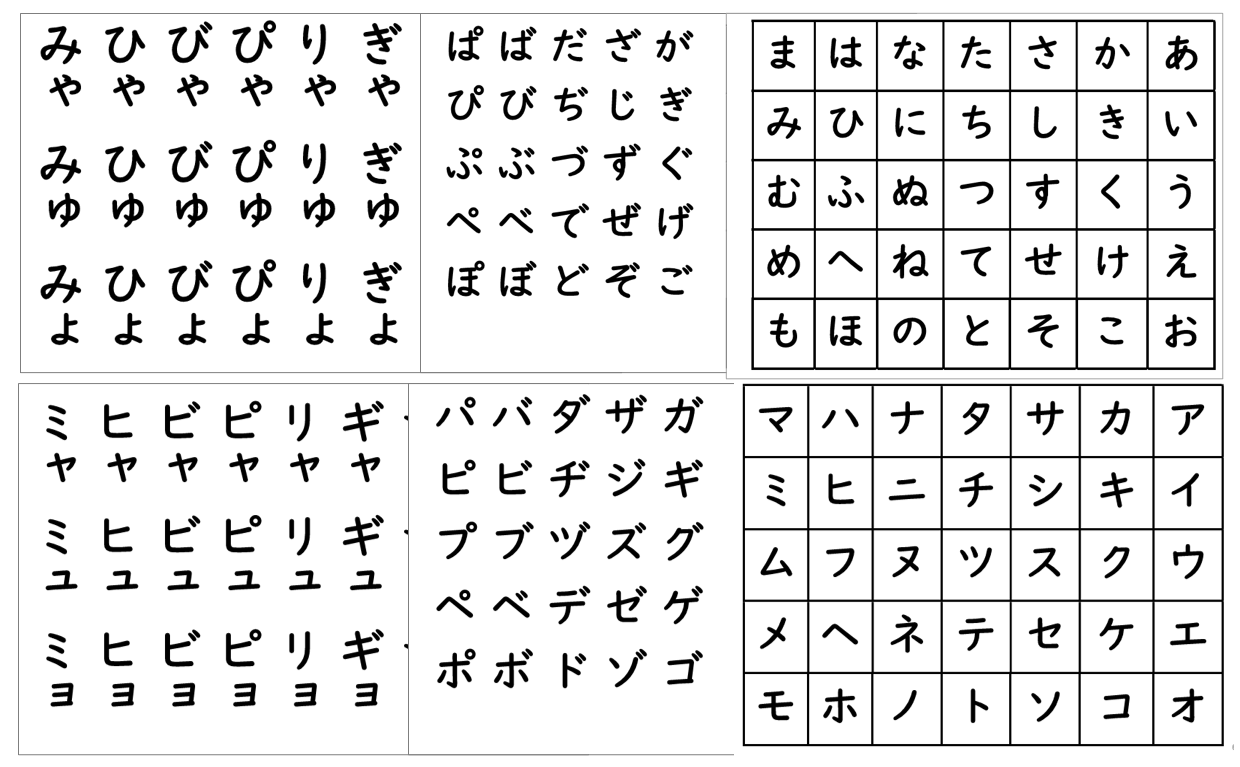 み ひ び ぴ り ぎ
ゃ ゃ ゃ ゃ ゃ ゃ
み ひ び ぴ り ぎ
ゅ ゅ ゅ ゅ ゅ ゅ
み ひ び ぴ り ぎ
ょ ょ ょ ょ ょ ょ
ぱ ば だ ざ が
ぴ び ぢ じ ぎ
ぷ ぶ づ ず ぐ
ぺ べ で ぜ げ
ぽ ぼ ど ぞ ご
ま は な た さ か あ
み ひ に ち し き い
む ふ ぬ つ す く う
め へ ね て せ け え
も ほ の と そ こ お
ミ ヒ ビ ピ リ ギ
ャ ャ ャ ャ ャ ャ
ミ ヒ ビ ピ リ ギ
ュ ュ ュ ュ ュ ュ
ミ ヒ ビ ピ リ ギ
ョ ョ ョ ョ ョ ョ
パ バ ダ ザ ガ
ピ ビ ヂ ジ ギ
プ ブ ヅ ズ グ
ペ ベ デ ゼ ゲ
ポ ボ ド ゾ ゴ
マ ハ ナ タ サ カ ア
ミ ヒ ニ チ シ キ イ
ム フ ヌ ツ ス ク ウ
メ ヘ ネ テ セ ケ エ
モ ホ ノ ト ソ コ オ